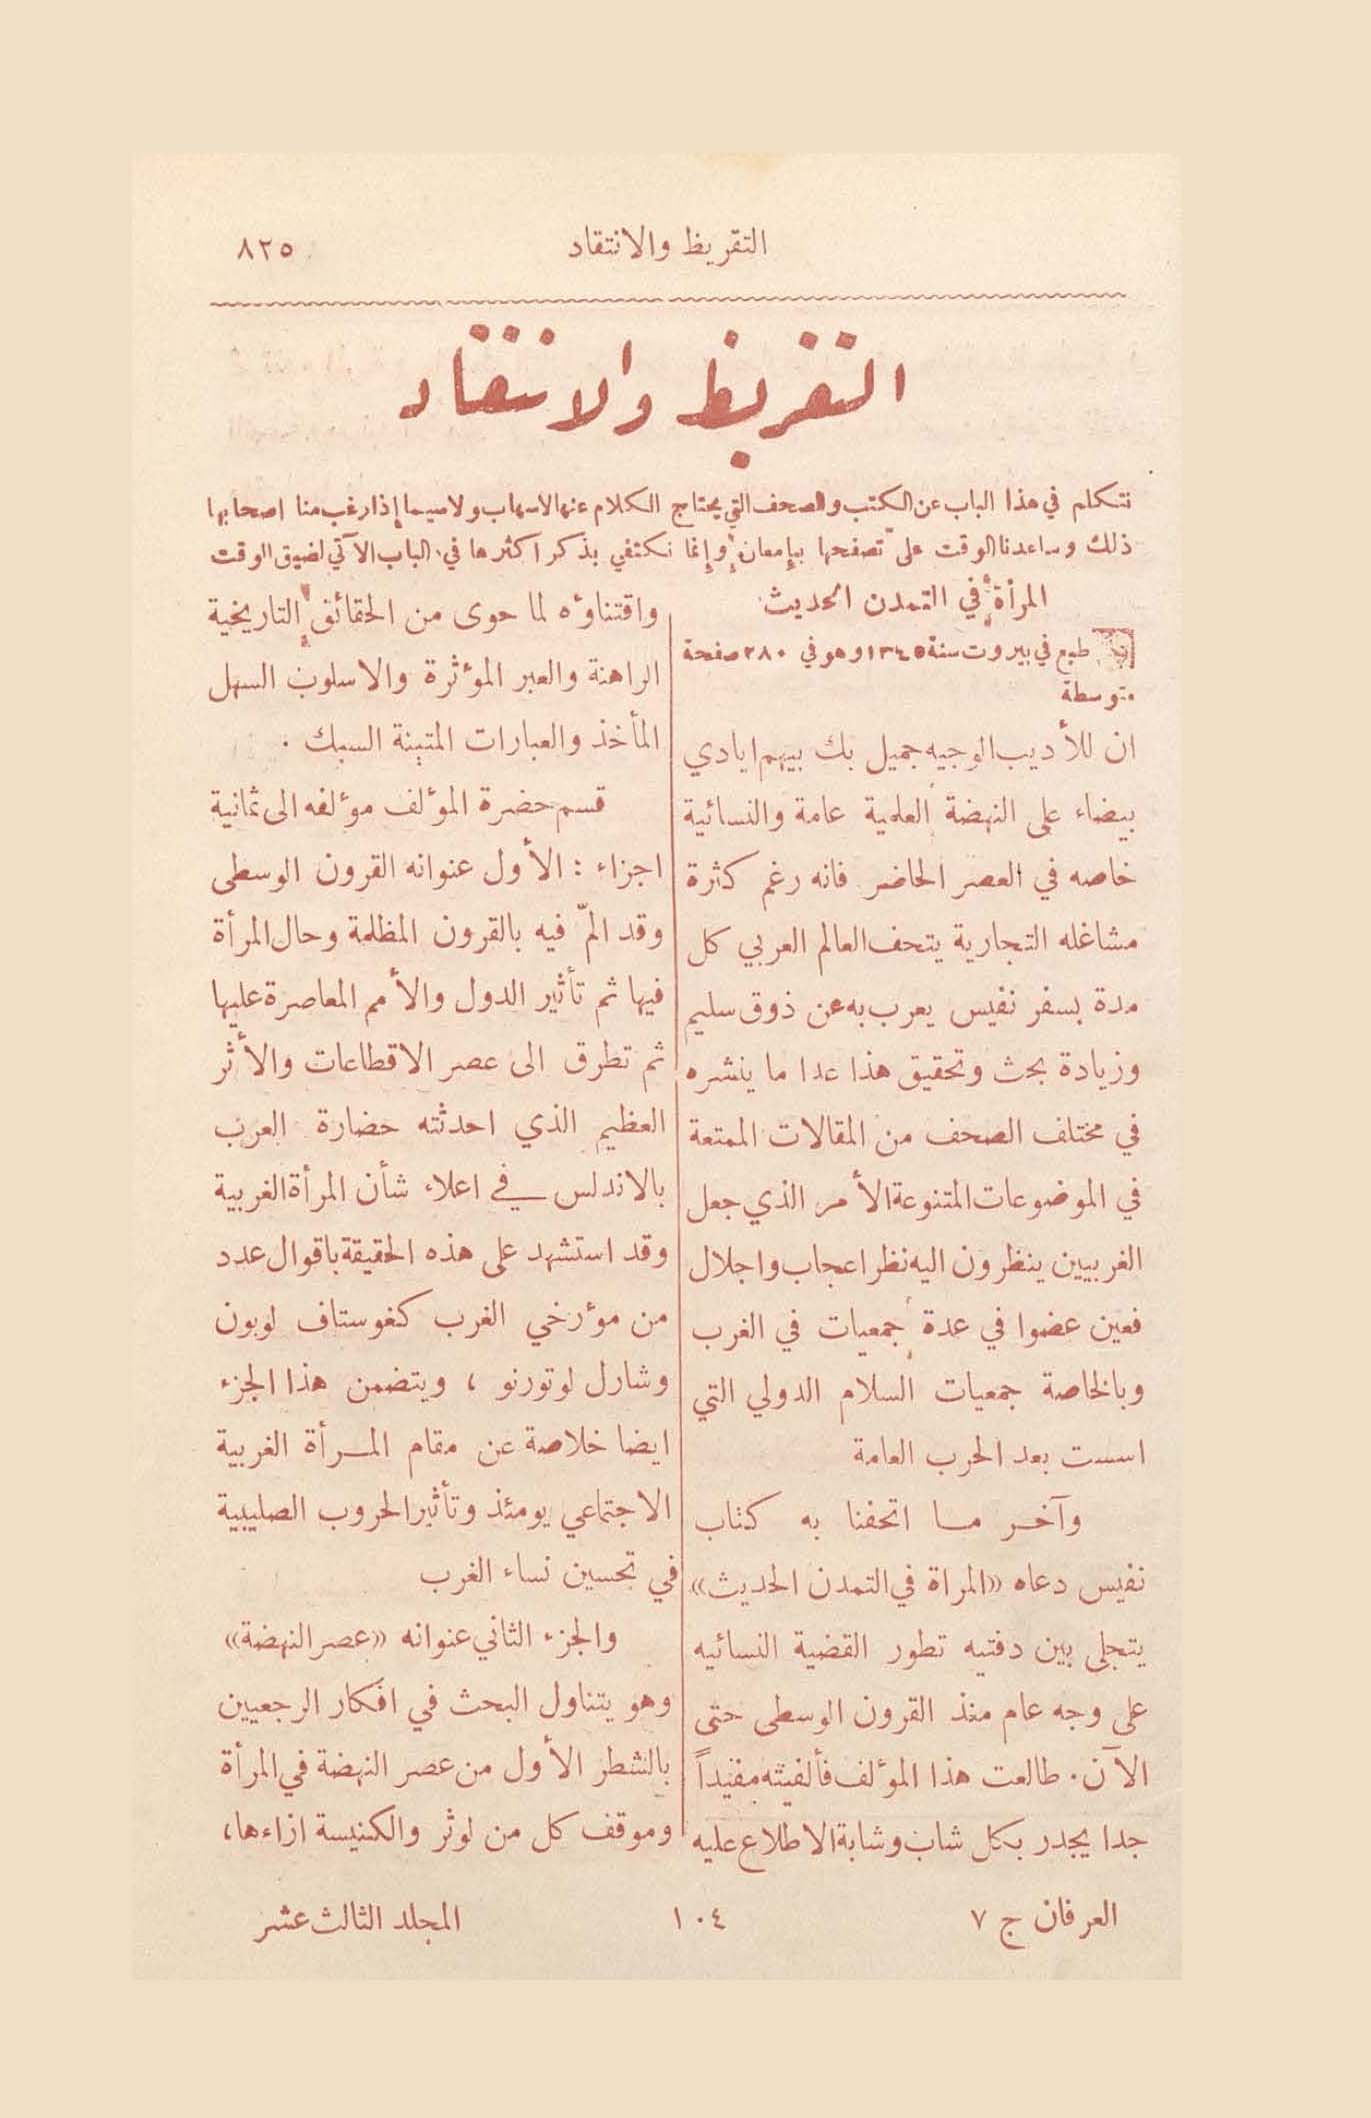 التقريظ والانتقاد
٨٢٥
التقريظ والانتقاد
نتكلم في هذا الباب عن الكتب والصحف التي يحتاج الكلام عنها لاسهاب ولاسيما إذا رغب منا اصحابها
ذلك وساعدنا الوقت على تصفحها بإمعان وإنما نكتفي بذكر اكثرها في الباب الآتي لضيق الوقت
المرأة في التمدن الحديث
طبع في بيروت سنة ١٣٤٥ وهو في ٢٨٠ صفحة
متوسطة
ان للأديب الوجيه جميل بك بيهم ايادي
بيضاء على النهضة العلمية عامة والنسائية
خاصه في العصر الحاضر فانه رغم كثرة
مشاغله التجارية يتحف العالم العربي كل
مدة بسفر نفيس يعرب به عن ذوق سليم
وزيادة بحث وتحقيق هذا عدا ما ينشره
في مختلف الصحف من المقالات الممتعة
في الموضوعات المتنوعة الأمر الذي جعل
الغربيين ينظرون اليه نظر اعجاب واجلال
فعين عضوا في عدة جمعيات في الغرب
وبالخاصة جمعيات السلام الدولي التي
اسست بعد الحرب العامة
وآخر مـا اتحفنا به كتاب
نفيس دعاه «المراة في التمدن الحديث»
يتجلى بين دفتيه تطور القضية النسائيه
على وجه عام منذ القرون الوسطى حتى
الآن. طالعت هذا المؤلف فألفيته مفيداً
جدا يجدر بكل شاب وشابة الاطلاع عليه
واقتناؤه لما حوى من الحقائق التاريخية
الراهنة والعبر المؤثرة والاسلوب السهل
المأخذ والعبارات المتينة السبك .
قسم حضرة المؤلف مؤلفه الى ثمانية
اجزاء : الأول عنوانه القرون الوسطى
وقد المّ فيه بالقرون المظلمة وحال المرأة
فيها ثم تأثير الدول والأمم المعاصرة عليها
ثم تطرق الى عصر الاقطاعات والأثر
العظيم الذي احدثته حضارة العرب
بالاندلس في اعلاء شأن المرأة الغربية
وقد استشهد على هذه الحقيقة باقوال عدد
من مؤرخي الغرب كغوستاف لوبون
وشارل لوتورنو ، ويتضمن هذا الجزء
ايضا خلاصة عن مقام المـرأة الغربية
الاجتماعي يومئذ وتأثير الحروب الصليبية
في تحسين نساء الغرب
والجزء الثاني عنوانه «عصر النهضة»
وهو يتناول البحث في افكار الرجعيين
بالشطر الأول من عصر النهضة في المرأة
وموقف كل من لوثر والكنيسة ازاءها،
العرفان ج ٧
١٠٤
المجلد الثالث عشر